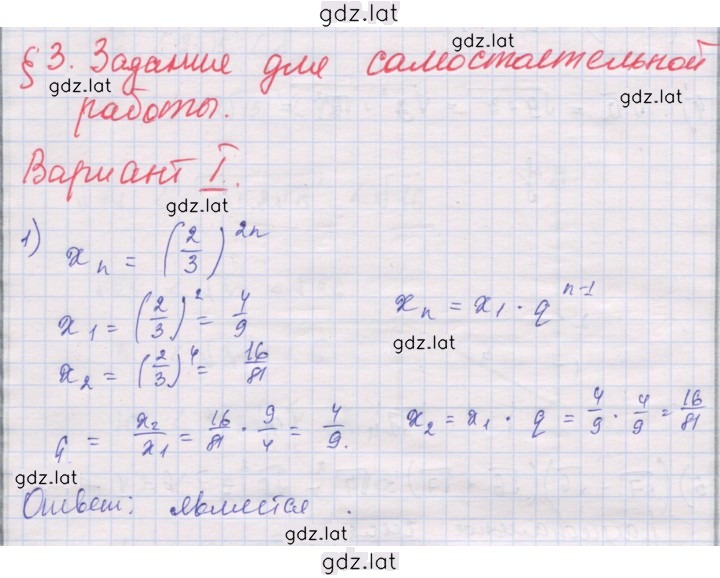 gdz.lat
§ 3. Задание для самостоятельной
gdz.lat
gdz.lat
работы.
Вариант I.
gdz.lat
1) xₙ = (2/3)²ⁿ
x₁ = (2/3)² = 4/9
xₙ = x₁ · qⁿ⁻¹
gdz.lat
x₂ = (2/3)⁴ = 16/81
q = x₂/x₁ = 16/81 · 9/4 = 4/9.
x₂ = x₁ · q = 4/9 · 4/9 = 16/81
gdz.lat
Ответ: является.
gdz.lat
gdz.lat